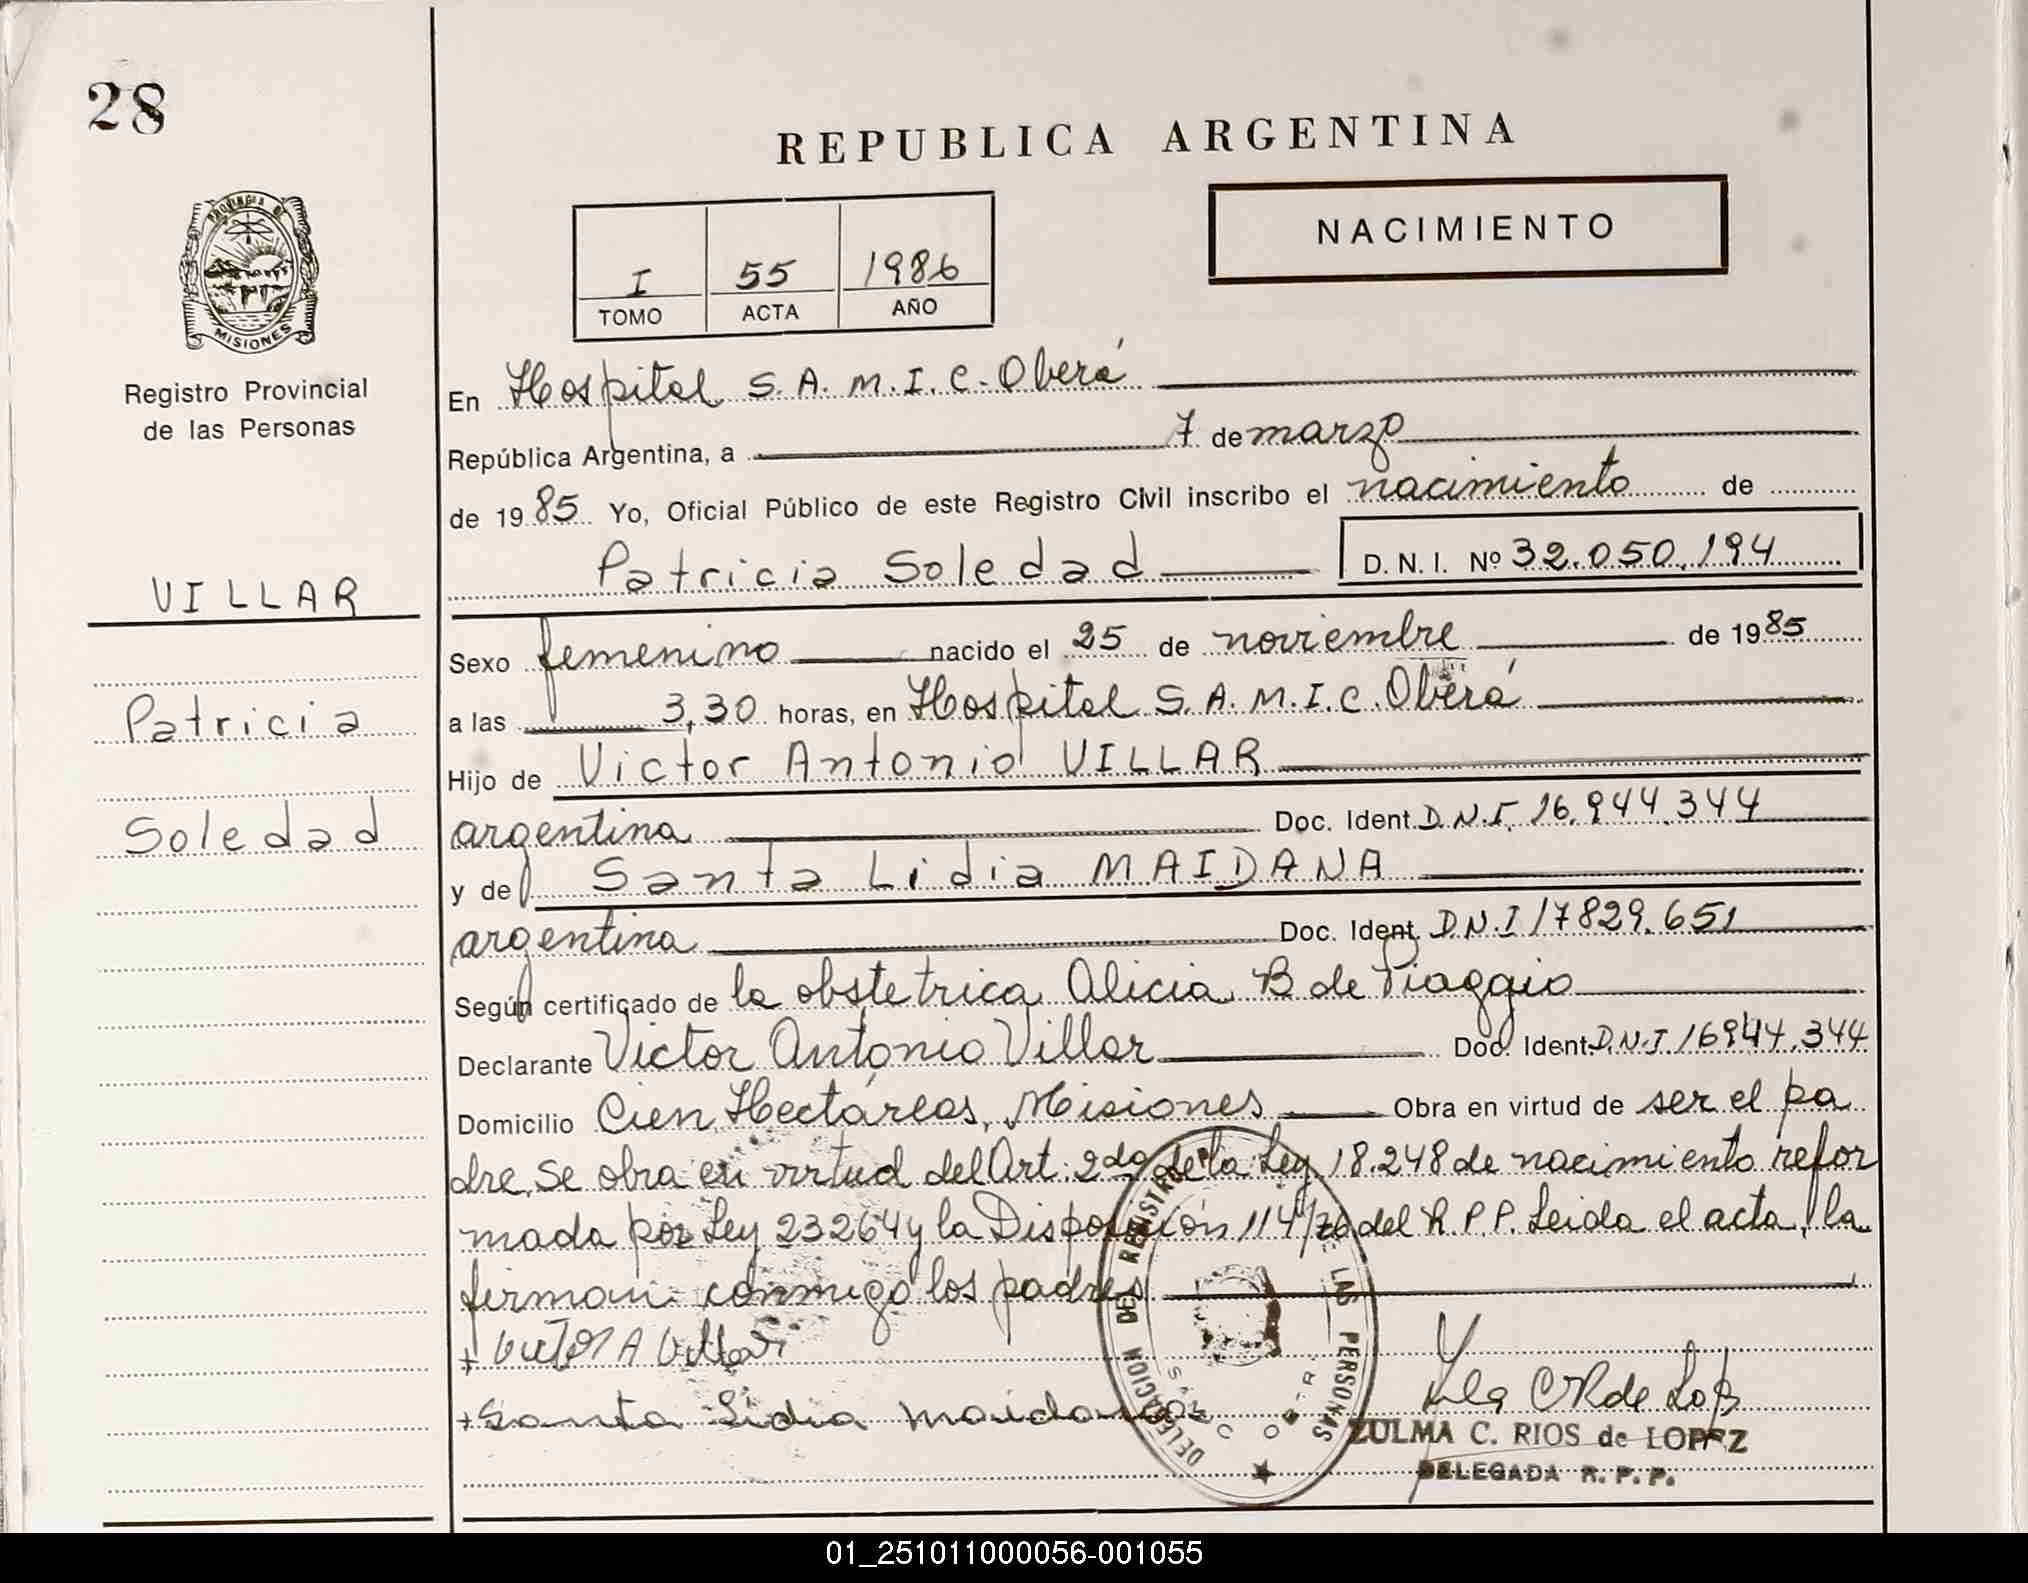 28
REPUBLICA ARGENTINA
NACIMIENTO
I 55 1986
TOMO ACTA AÑO
PROVINCIA DE
MISIONES
Registro Provincial
de las Personas
VILLAR
Patricia
Soledad
En Hospital S.A.M.I.C. Oberá
República Argentina, a 7 de marzo
de 1985 Yo, Oficial Público de este Registro Civil inscribo el nacimiento de
Patricia Soledad D.N.I. Nº 32.050.194
Sexo femenino nacido el 25 de noviembre de 1985
a las 3,30 horas, en Hospital S.A.M.I.C. Oberá
Hijo de Victor Antonio VILLAR
argentina Doc. Ident. D.N.I. 16.944.344
y de Santa Lidia MAIDANA
argentina Doc. Ident. D.N.I 17829.651
Según certificado de la obstetrica Alicia B de Piaggio
Declarante Victor Antonio Villar Doc. Ident. D.N.I. 16944.344
Domicilio Cien Hectáreas, Misiones Obra en virtud de ser el pa
dre, Se obra en virtud del Art. 2do de la Ley 18.248 de nacimiento refor
mada por Ley 23264 y la Disposición 114/76 del R.P.P. Leida el acta, la
firman conmigo los padres
+ Victor A Villar
+ Santa Lidia Maidana
DELEGACION DEL REGISTRO DE LAS PERSONAS
ZULMA C. RIOS de LOPEZ
DELEGADA R.P.P.
01_251011000056-001055